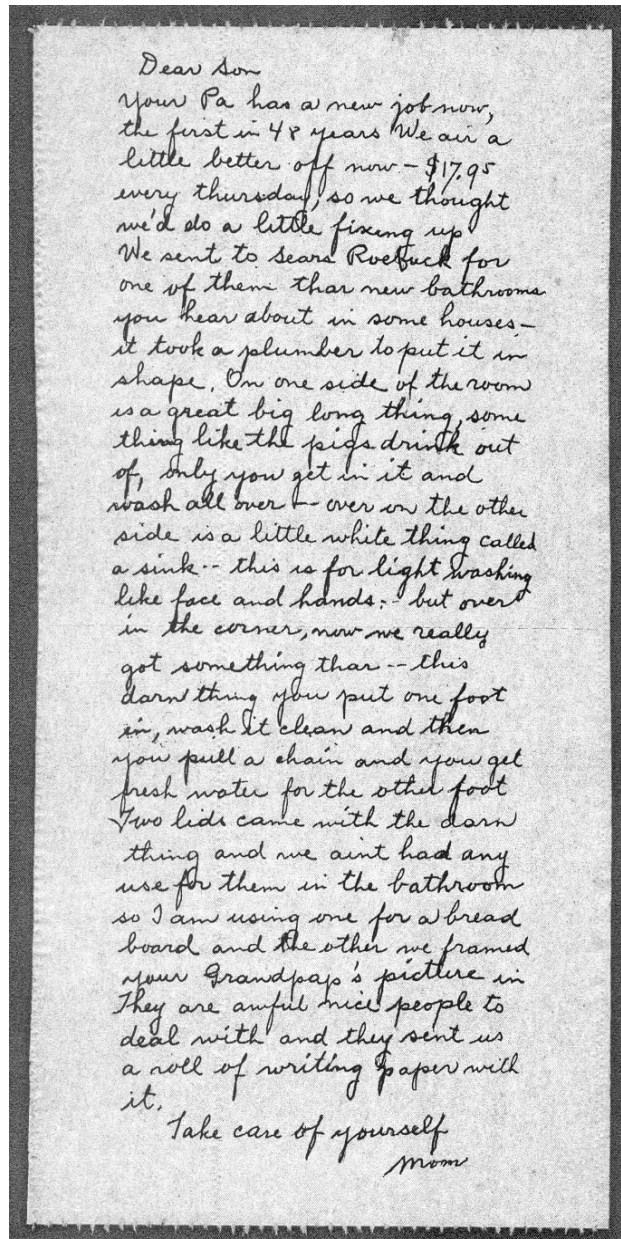 Dear Son
Your Pa has a new job now,
the first in 48 years We air a
little better off now - $17.95
every thursday, so we thought
we'd do a little fixing up
We sent to Sears Roebuck for
one of them thar new bathrooms
you hear about in some houses -
it took a plumber to put it in
shape. On one side of the room
is a great big long thing, some
thing like the pigs drink out
of, only you get in it and
wash all over -- over on the other
side is a little white thing called
a sink -- this is for light washing
like face and hands -- but over
in the corner, now we really
got something thar -- this
darn thing you put one foot
in, wash it clean and then
you pull a chain and you get
fresh water for the other foot
Two lids came with the darn
thing and we aint had any
use for them in the bathroom
so I am using one for a bread
board and the other we framed
your Grandpap's picture in
They are awful nice people to
deal with and they sent us
a roll of writing paper with
it.
Take care of yourself
Mom